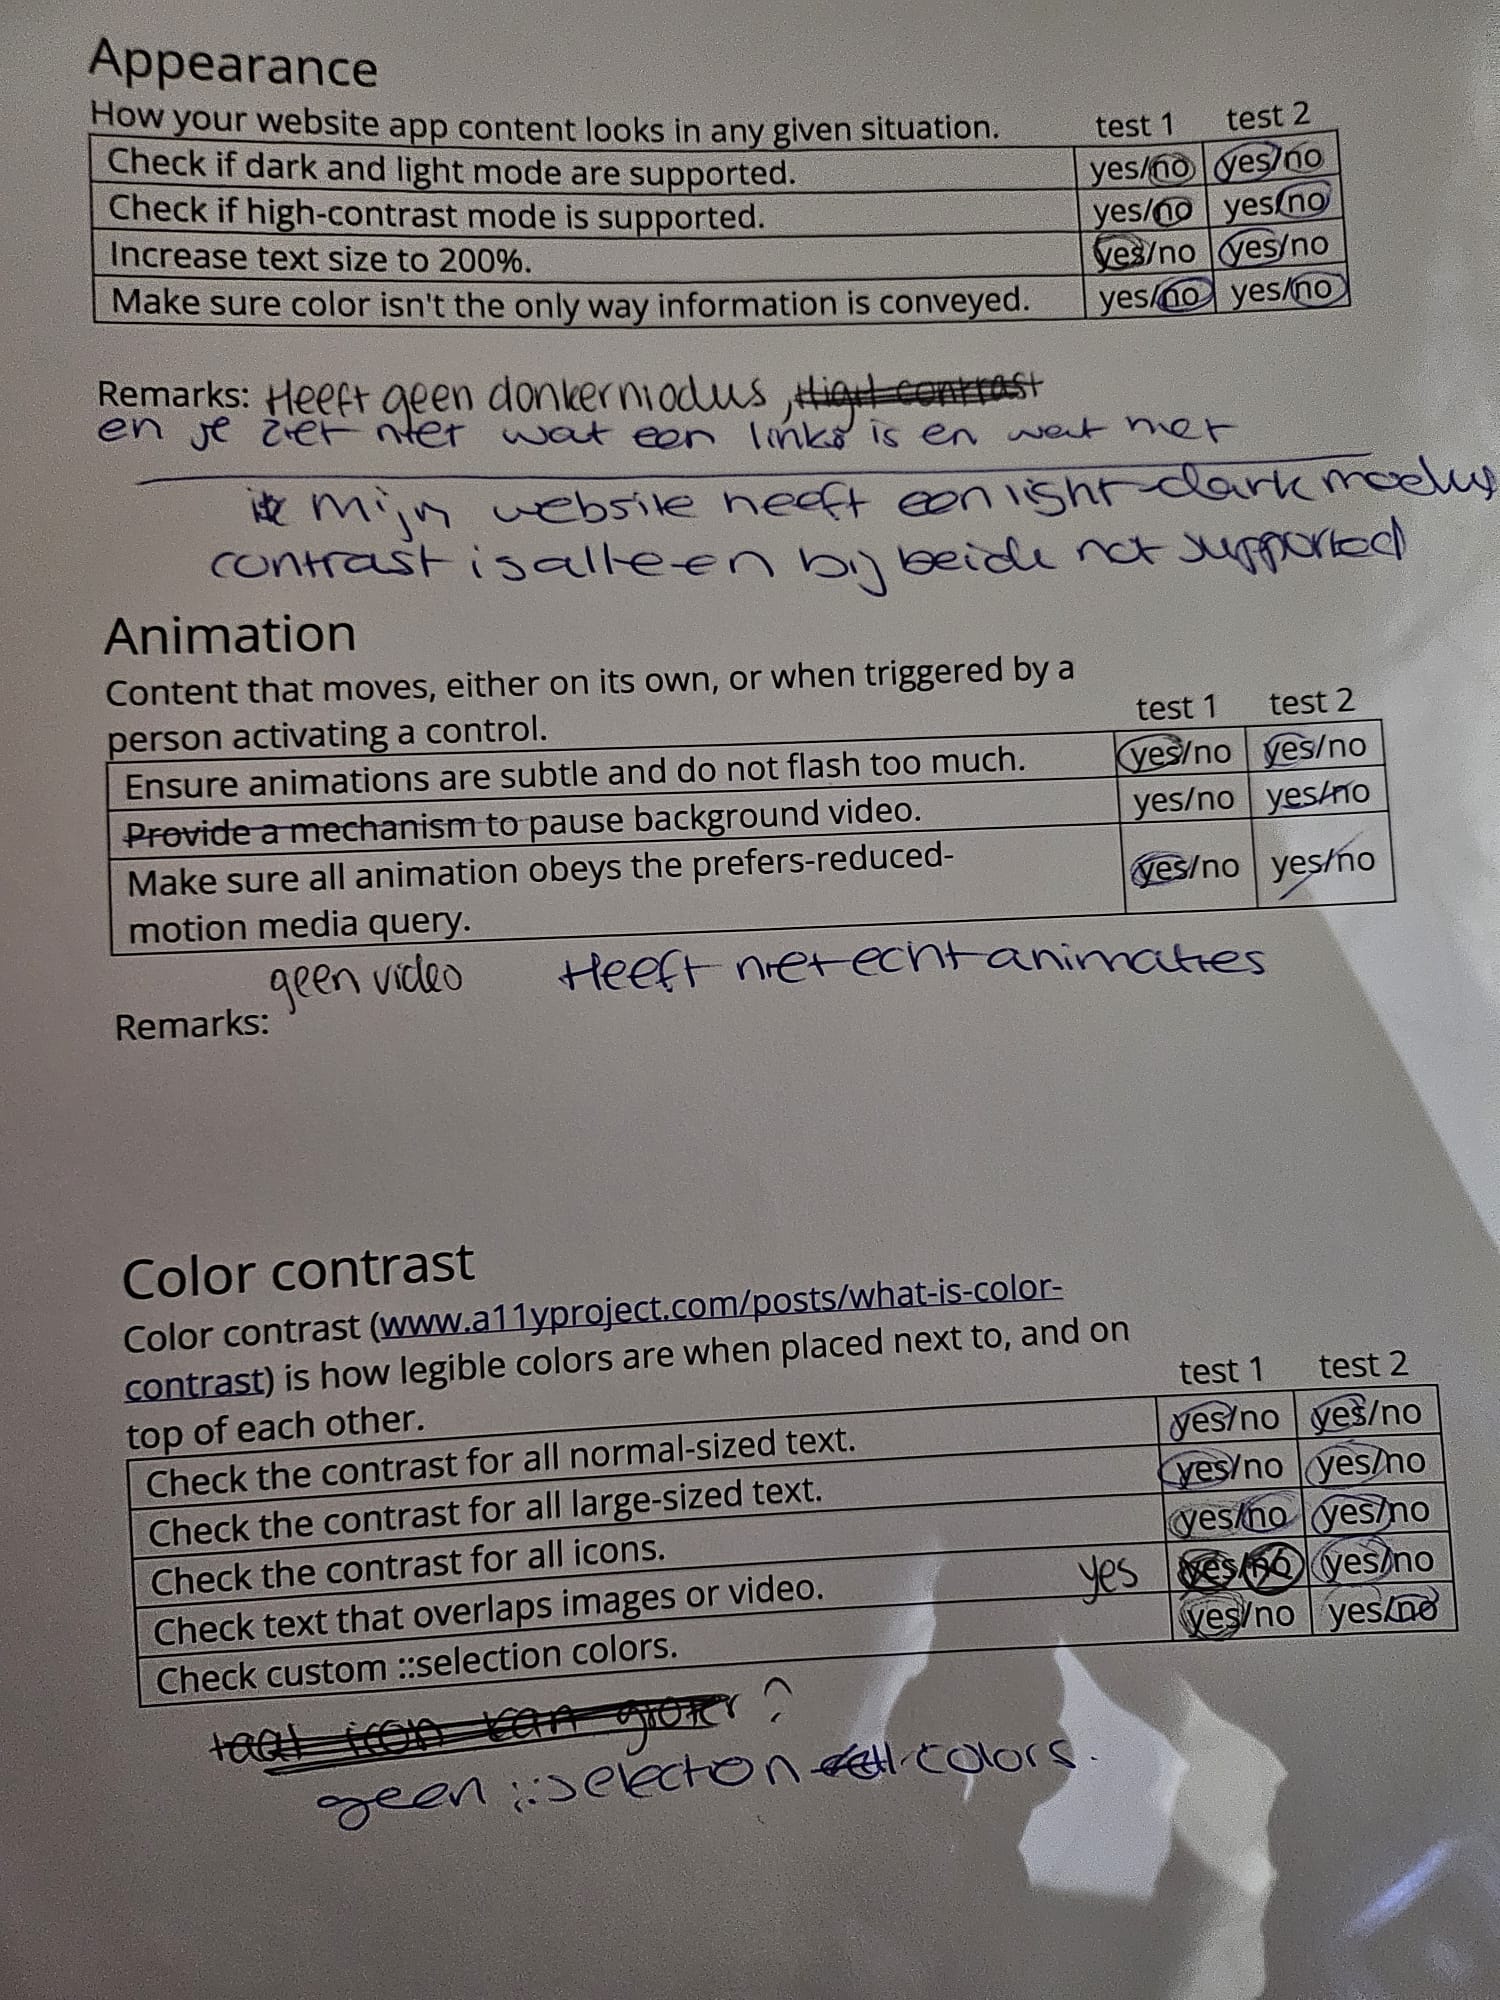 Appearance
How your website app content looks in any given situation. test 1 test 2
Check if dark and light mode are supported. yes/no yes/no
Check if high-contrast mode is supported. yes/no yes/no
Increase text size to 200%. yes/no yes/no
Make sure color isn't the only way information is conveyed. yes/no yes/no
Remarks: Heeft geen donkermodus, High contrast
en je ziet niet wat een links is en wat niet
mijn website heeft een light-dark modus
contrast is alleen bij beide not supported
Animation
Content that moves, either on its own, or when triggered by a
person activating a control. test 1 test 2
Ensure animations are subtle and do not flash too much. yes/no yes/no
Provide a mechanism to pause background video. yes/no yes/no
Make sure all animation obeys the prefers-reduced- yes/no yes/no
motion media query.
geen video Heeft niet echt animaties
Remarks:
Color contrast
Color contrast (www.a11yproject.com/posts/what-is-color-
contrast) is how legible colors are when placed next to, and on
top of each other. test 1 test 2
Check the contrast for all normal-sized text. yes/no yes/no
Check the contrast for all large-sized text. yes/no yes/no
Check the contrast for all icons. yes/no yes/no
Check text that overlaps images or video. yes yes/no yes/no
Check custom ::selection colors. yes/no yes/no
icon kan groter ?
geen ::selection colors.